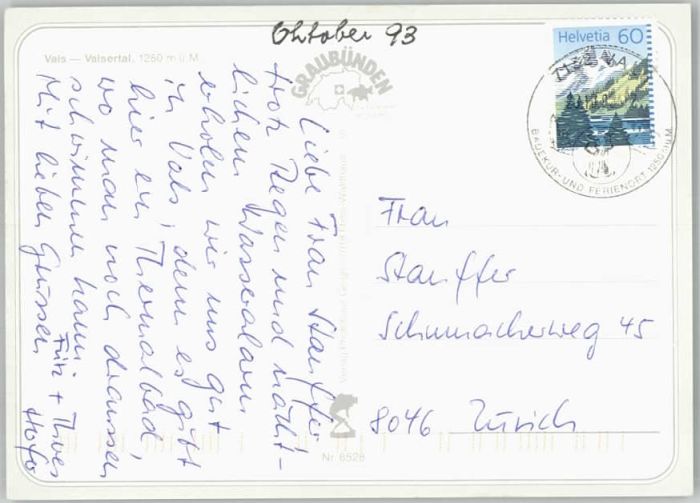 Oktober 93
Vals — Valsertal, 1250 m ü. M.
GRAUBÜNDEN
Helvetia 60
7132 VALS
BADEKUR- UND FERIENORT 1250 M Ü M
Liebe Frau Stauffer
trotz Regen und nächt-
lichem Wasseralarm
erholen wir uns gut
in Vals, denn es gibt
hier ein Thermalbad,
wo man noch draussen
schwimmen kann.
Mit lieben Grüssen
Fritz + Theres
Hofer
Frau
Stauffer
Schumacherweg 45
8046 Zürich
Nr. 6528